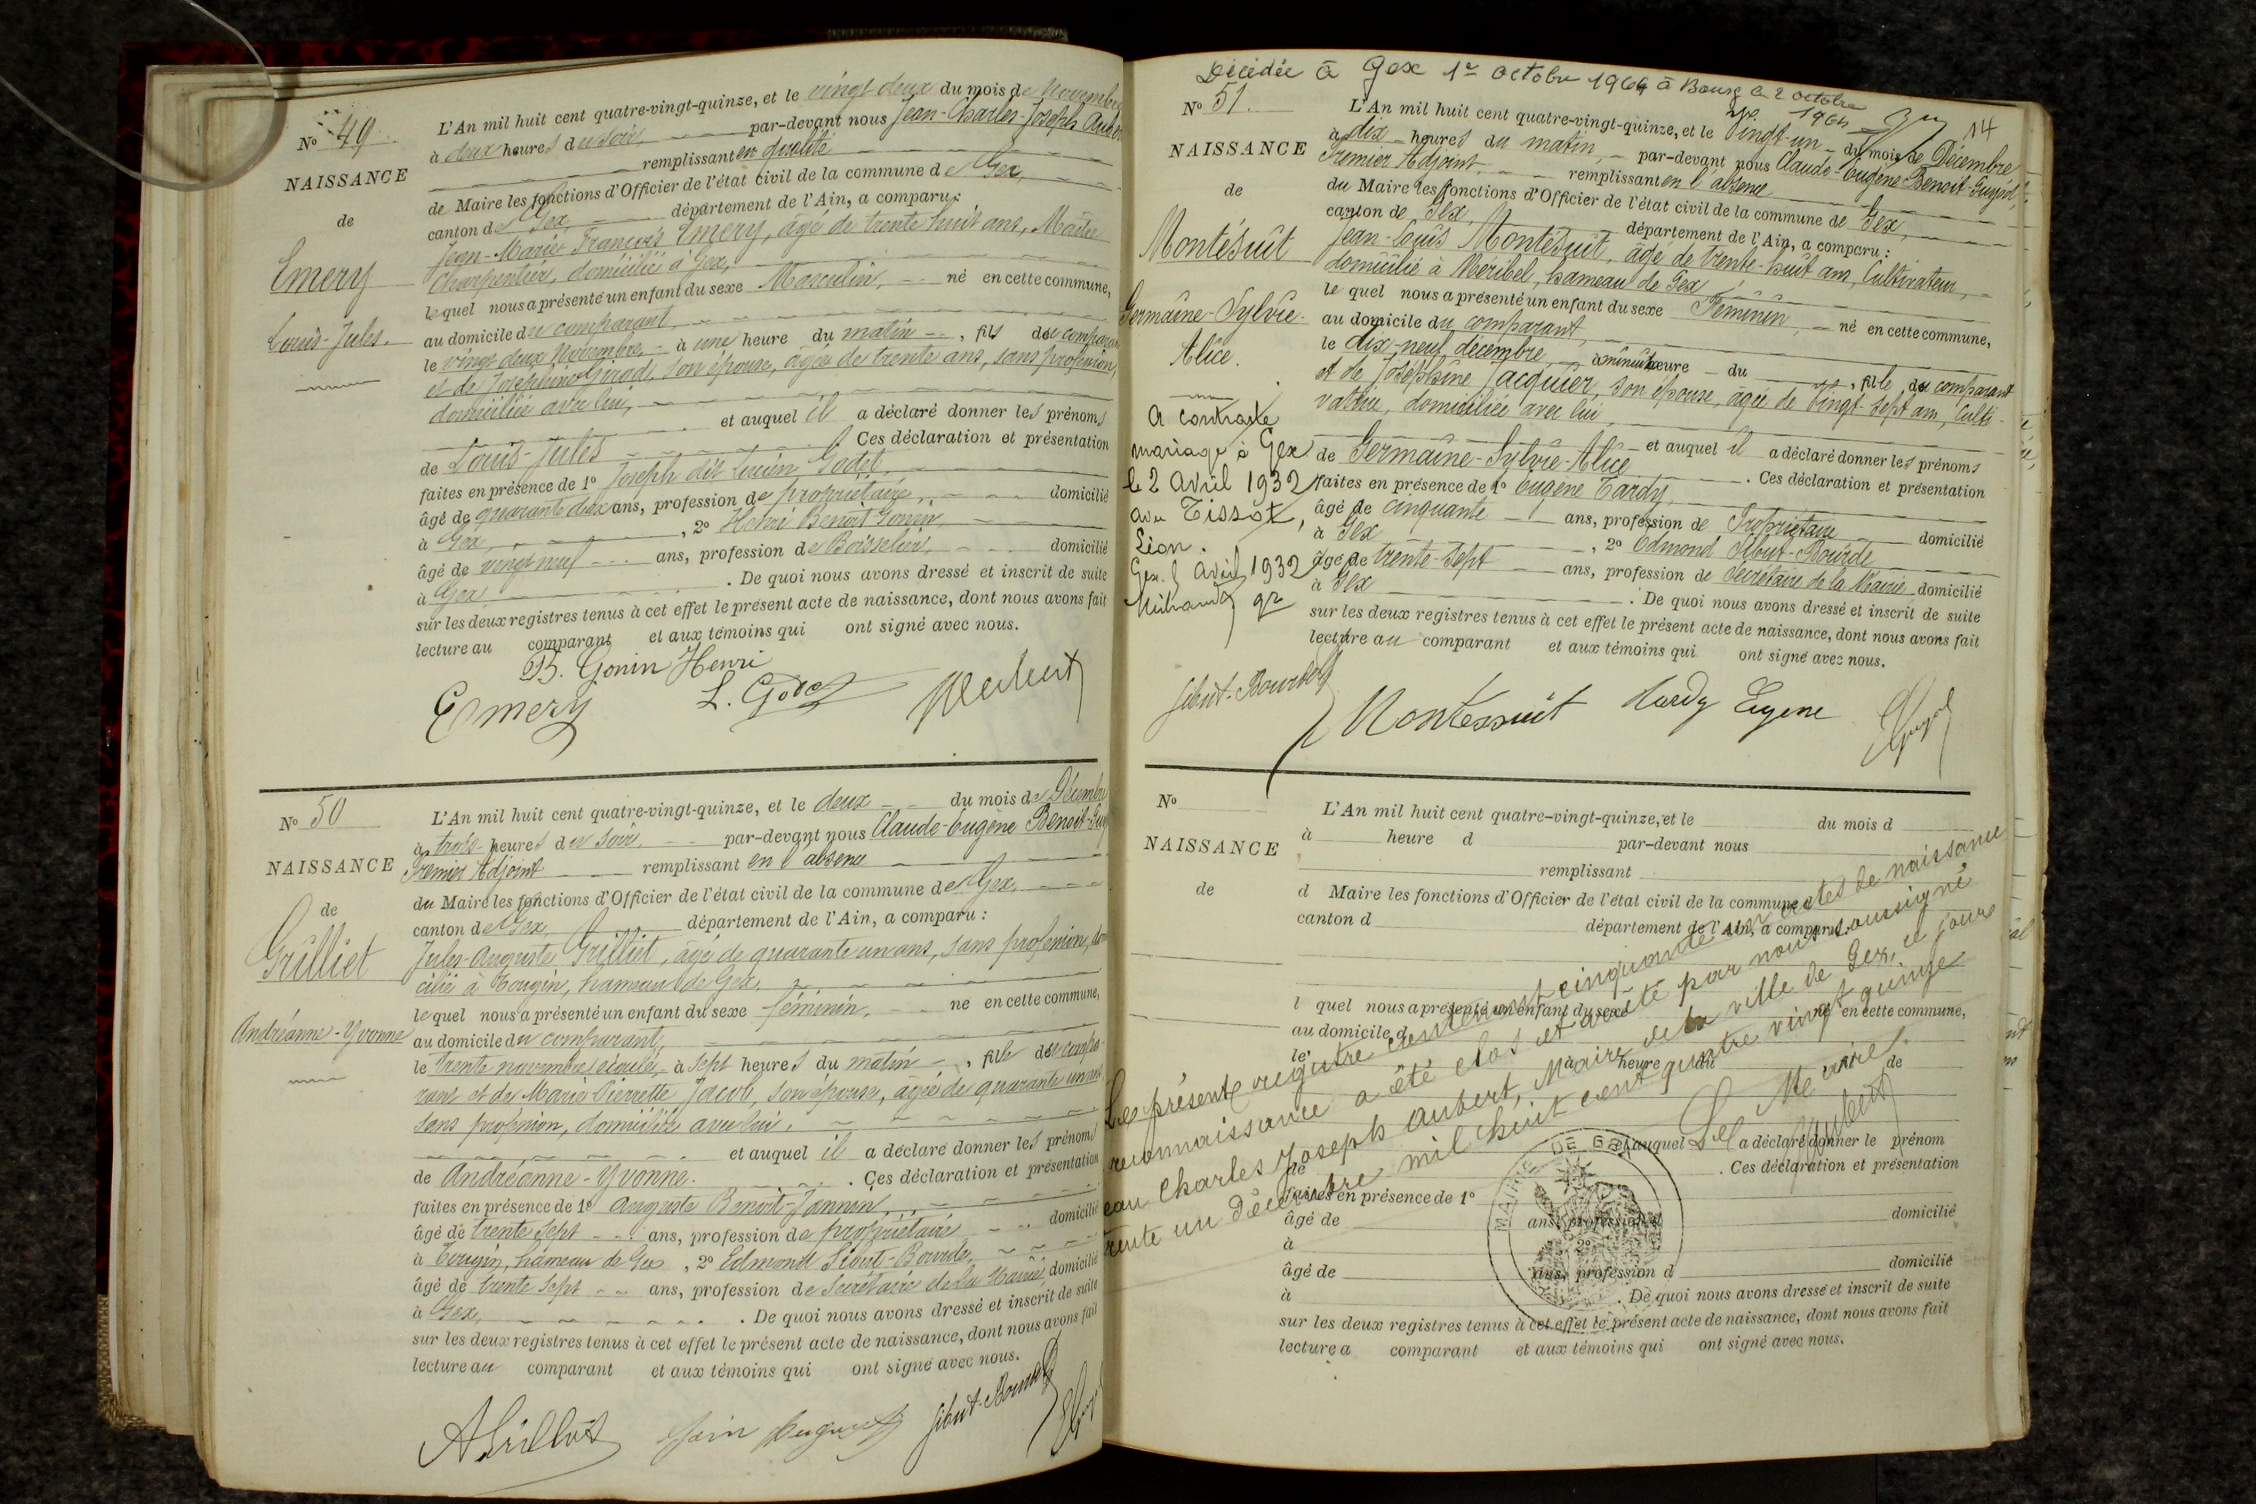 No 49.
NAISSANCE
de
Emery
Louis-Jules.
L'An mil huit cent quatre-vingt-quinze, et le vingt deux du mois de Novembre
à deux heures du soir, par-devant nous Jean-Charles-Joseph Aubert
remplissant en qualité
de Maire les fonctions d'Officier de l'état civil de la commune de Gex,
canton de Gex département de l'Ain, a comparu:
Jean-Marie François Emery, âgé de trente huit ans, Maître
Charpentier, domicilié à Gex,
lequel nous a présenté un enfant du sexe Masculin, né en cette commune,
au domicile du comparant,
le vingt deux Novembre, à une heure du matin, fils du comparant
et de Joséphine Girod, son épouse, âgée de trente ans, sans profession,
domiciliée avec lui,
et auquel il a déclaré donner les prénoms
de Louis-Jules. Ces déclaration et présentation
faites en présence de 1o Joseph dit Lucien Godet,
âgé de quarante deux ans, profession de propriétaire, domicilié
à Gex, , 2o Henri Benoit Gonin,
âgé de vingt neuf ans, profession de Boisselier, domicilié
à Gex. De quoi nous avons dressé et inscrit de suite
sur les deux registres tenus à cet effet le présent acte de naissance, dont nous avons fait
lecture au comparant et aux témoins qui ont signé avec nous.
B. Gonin Henri
Emery L. Godet Aubert
No 50
NAISSANCE
de
Grilliet
Andréanne-Yvonne
L'An mil huit cent quatre-vingt-quinze, et le deux du mois de Décembre
à trois heures du soir, par-devant nous Claude-Eugène Benoit-Guyod
Premier Adjoint remplissant en l'absence
du Maire les fonctions d'Officier de l'état civil de la commune de Gex,
canton de Gex, département de l'Ain, a comparu:
Jules-Auguste Grilliet, âgé de quarante un ans, sans profession, domi
cilié à Tougin, hameau de Gex,
lequel nous a présenté un enfant du sexe féminin, né en cette commune,
au domicile du comparant,
le trente novembre écoulé, à sept heures du matin, fille du compa-
rant et de Marie Pierrette Jacob, son épouse, âgée de quarante un ans
sans profession, domiciliée avec lui.
et auquel il a déclaré donner les prénoms
de Andréanne-Yvonne. Ces déclaration et présentation
faites en présence de 1o Auguste Benoit-Jannin,
âgé de trente sept ans, profession de propriétaire domicilié
à Tougin, hameau de Gex, 2o Edmond Sibut-Bourde,
âgé de trente sept ans, profession de Secrétaire de la Mairie, domicilié
à Gex, . De quoi nous avons dressé et inscrit de suite
sur les deux registres tenus à cet effet le présent acte de naissance, dont nous avons fait
lecture au comparant et aux témoins qui ont signé avec nous.
A Grilliet Sibut-Bourde
Décédée à Gex 1er octobre 1964 à Bourg le 2 octobre
1964
14
No 51.
NAISSANCE
de
Montésuit
Germaine-Sylvie-
Alice.
A contracté
mariage à Gex
le 2 Avril 1932
avec Tissot,
Léon.
Gex, 2 Avril 1932
L'An mil huit cent quatre-vingt-quinze, et le vingt-un du mois de Décembre
à dix heures du matin, par-devant nous Claude-Eugène-Benoit-Guyod,
Premier Adjoint remplissant en l'absence
du Maire les fonctions d'Officier de l'état civil de la commune de Gex,
canton de Gex, département de l'Ain, a comparu:
Jean-Louis Montésuit, âgé de trente-huit ans, Cultivateur,
domicilié à Méribel, hameau de Gex,
lequel nous a présenté un enfant du sexe Féminin, né en cette commune,
au domicile du comparant,
le dix-neuf décembre, à minuit heure du , fille du comparant
et de Joséphine Jacquier, son épouse, âgée de vingt-sept ans, Culti-
vatrice, domiciliée avec lui,
et auquel il a déclaré donner les prénoms
de Germaine-Sylvie-Alice. Ces déclaration et présentation
faites en présence de 1o Eugène Tardy,
âgé de cinquante ans, profession de Propriétaire domicilié
à Gex, 2o Edmond Sibut-Bourde
âgé de trente-sept ans, profession de Secrétaire de la Mairie domicilié
à Gex. De quoi nous avons dressé et inscrit de suite
sur les deux registres tenus à cet effet le présent acte de naissance, dont nous avons fait
lecture au comparant et aux témoins qui ont signé avec nous.
Sibut-Bourde Montessuit Tardy Eugène
No
NAISSANCE
de
L'An mil huit cent quatre-vingt-quinze, et le du mois d
à heure d par-devant nous
remplissant
d Maire les fonctions d'Officier de l'état civil de la commune d
canton d département de l'Ain, a comparu:
l quel nous a présenté un enfant du sexe né en cette commune,
au domicile d
le à heure du de
et auquel a déclaré donner le prénom
de . Ces déclaration et présentation
faites en présence de 1o
âgé de ans, profession d domicilié
à 2o
âgé de ans, profession d domicilié
à . De quoi nous avons dressé et inscrit de suite
sur les deux registres tenus à cet effet le présent acte de naissance, dont nous avons fait
lecture a comparant et aux témoins qui ont signé avec nous.
Le présent registre contenant cinquante un actes de naissance
reconnaissance a été clos et arrêté par nous soussigné
ean Charles Joseph Aubert, Maire de la ville de Gex, ce jour
rente un Décembre mil huit cent quatre vingt quinze
Le Maire.
Aubert
MAIRIE DE GEX